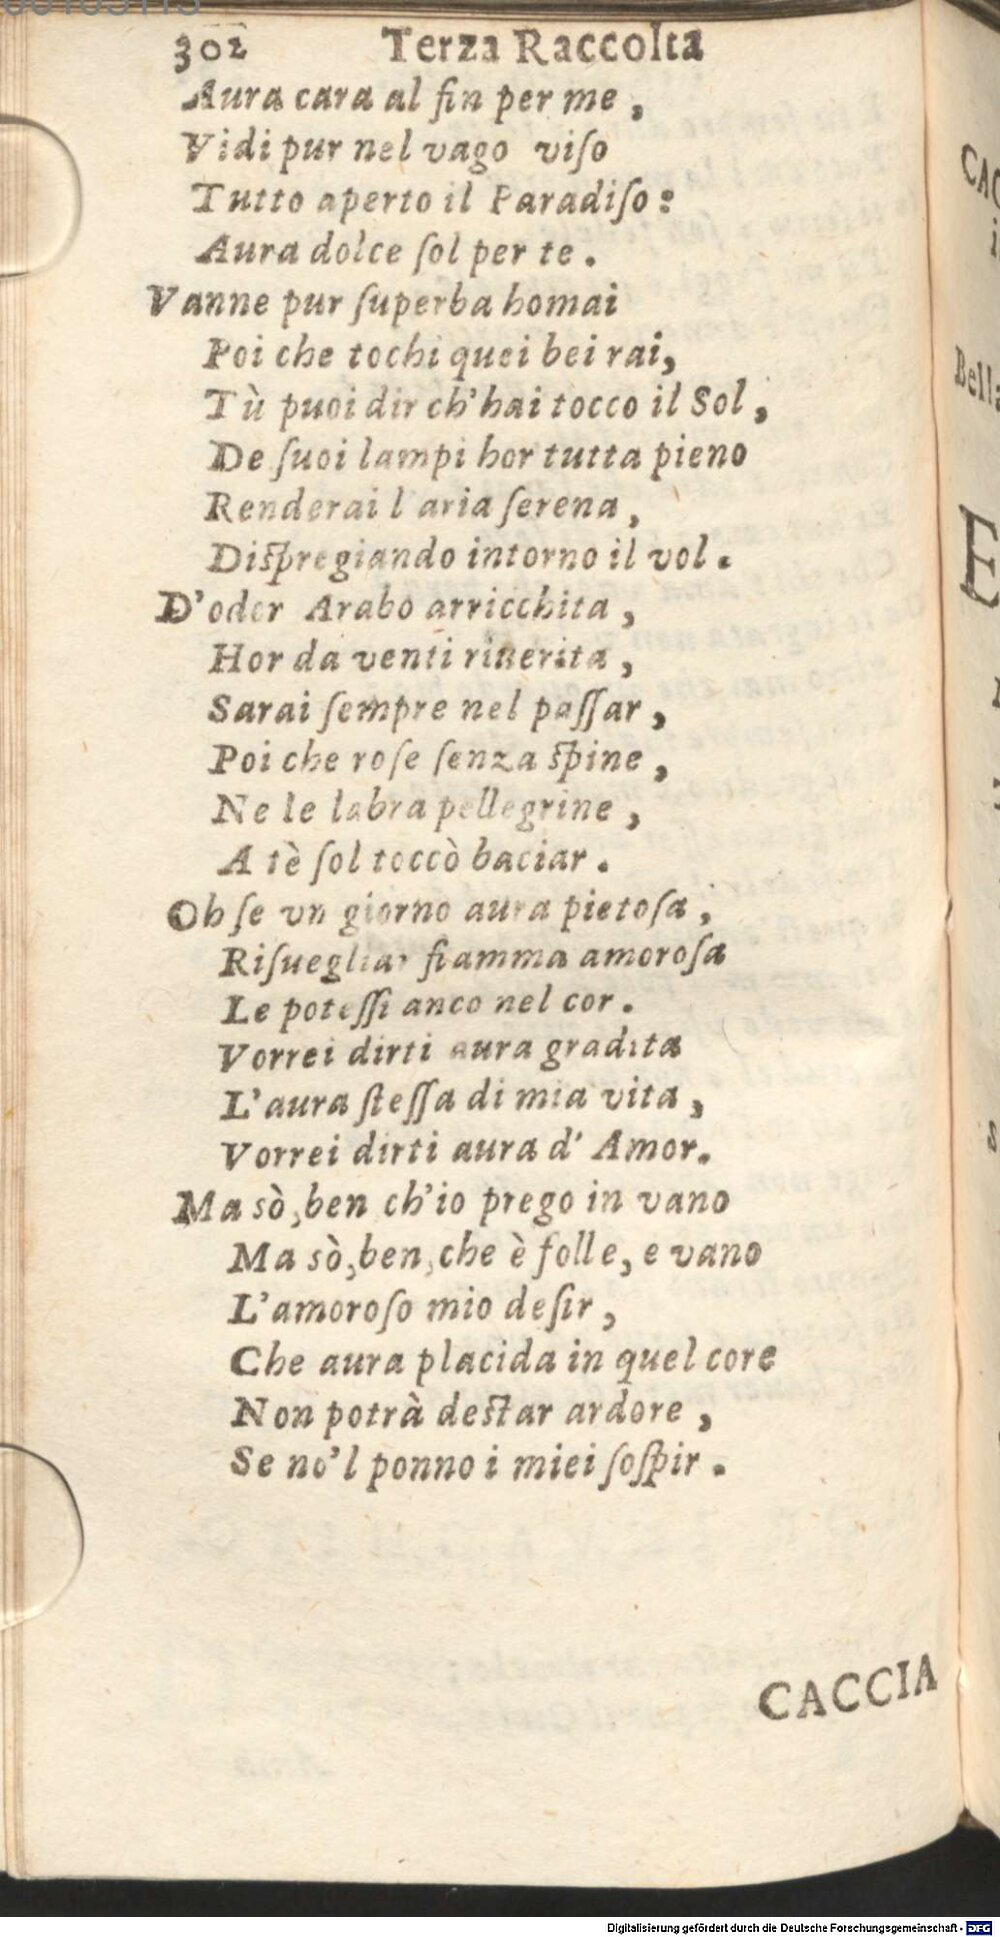 302 Terza Raccolta
Aura cara al fin per me,
Vidi pur nel vago viſo
Tutto aperto il Paradiſo:
Aura dolce ſol per te.
Vanne pur ſuperba homai
Poi che tochi quei bei rai,
Tù puoi dir ch'hai tocco il Sol,
De ſuoi lampi hor tutta pieno
Renderai l aria ſerena,
Diſpregiando intorno il vol.
D'odor Arabo arricchita,
Hor da venti riuerita,
Sarai ſempre nel paſſar,
Poi che roſe ſenza ſpine,
Ne le labra pellegrine,
A tè ſol toccò baciar.
Oh ſe vn giorno aura pietoſa,
Riſuegliar fiamma amoroſa
Le poteſſi anco nel cor.
Vorrei dirti aura gradita
L'aura ſteſſa di mia vita,
Vorrei dirti aura d'Amor.
Ma sò, ben ch'io prego in vano
Ma sò, ben, che è folle, e vano
L'amoroſo mio deſir,
Che aura placida in quel core
Non potrà deſtar ardore,
Se no'l ponno i miei ſoſpir.
CACCIA
CAC
Bell
E
Digitalisierung gefördert durch die Deutsche Forschungsgemeinschaft - DFG